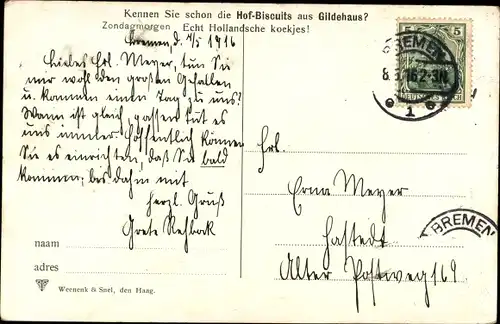 Kennen Sie schon die Hof-Biscuits aus Gildehaus?
Zondagmorgen Echt Hollandsche koekjes!
Bremen, d. 7/5 1916
Liebes Frl. Meyer, tun Sie
mir wohl den großen Gefallen
u. kommen einen Tag zu uns?
Wann ist gleich, passen tut es
uns immer. Hoffentlich können
Sie es einrichten, daß Sie bald
kommen; bis dahin mit
herzl. Gruß
Grete Rehbock
naam
adres
Weenenk & Snel, den Haag.
5
DEUTSCHES REICH
BREMEN
8 16 2-3N
1
Frl.
Erna Meyer
Hastedt
Alter Postweg 169
BREMEN